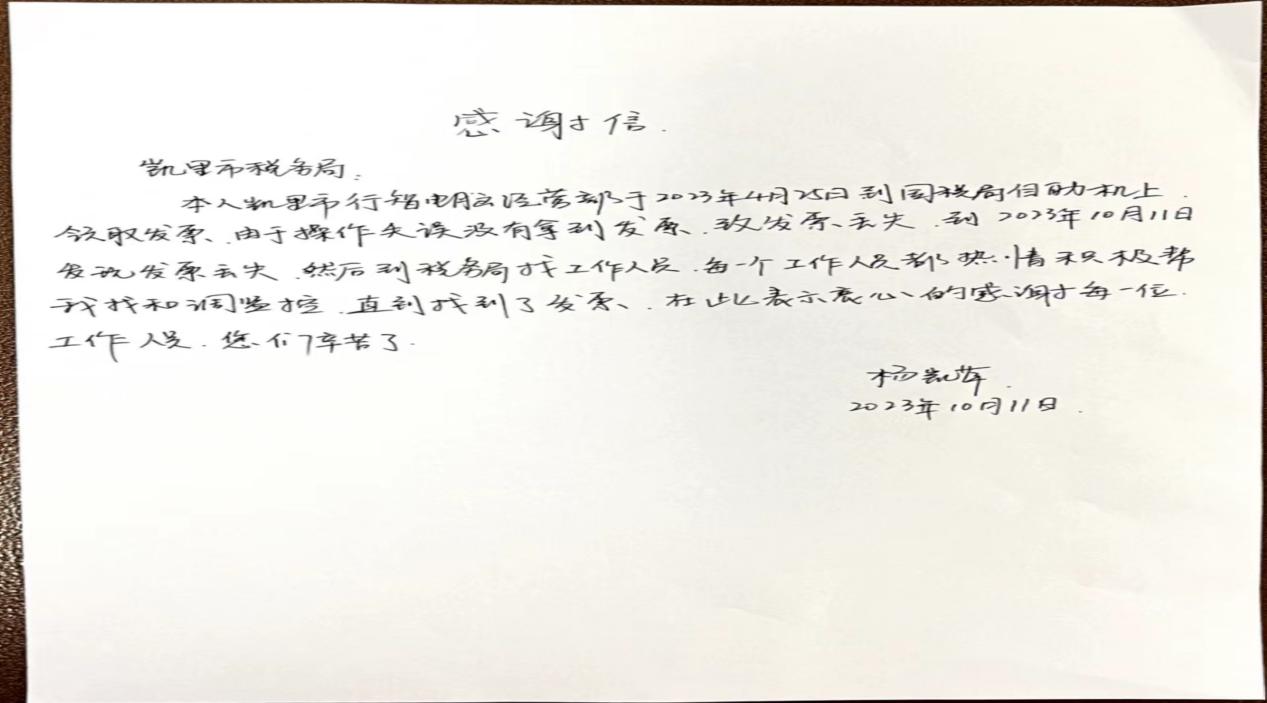 感谢信.
凯里市税务局:
本人凯里市行智电脑经营部于2023年4月25日到国税局自助机上.
领取发票、由于操作失误没有拿到发票、致发票丢失.到2023年10月11日
发现发票丢失.然后到税务局找工作人员.每一个工作人员都热情积极帮
我找和调监控.直到找到了发票、.在此表示衷心的感谢每一位.
工作人员.您们辛苦了.
杨凯.
2023年10月11日.